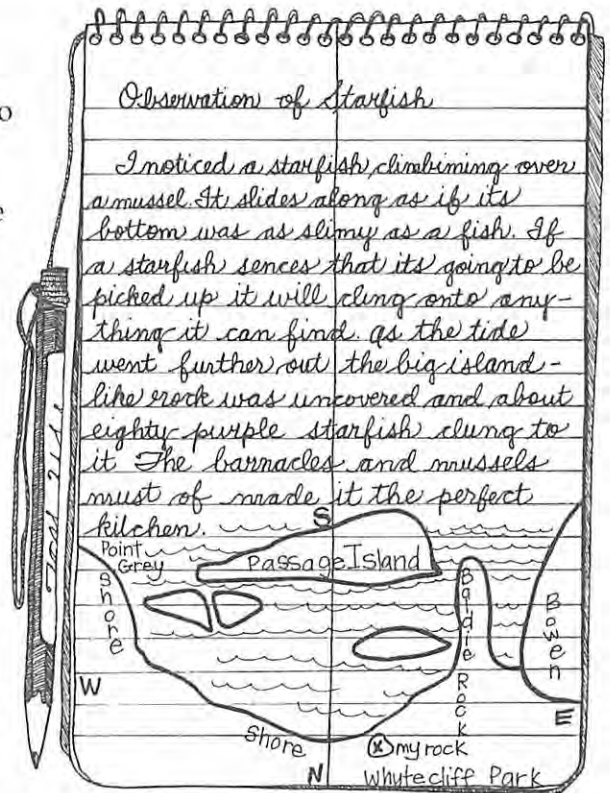 Observation of Starfish
I noticed a starfish climbiming over
a mussel. It slides along as if its
bottom was as slimy as a fish. If
a starfish sences that its going to be
picked up it will cling onto any-
thing it can find. as the tide
went further out the big island-
like rock was uncovered and about
eighty purple starfish clung to
it The barnacles and mussels
must of made it the perfect
kitchen.
S
Point
Grey
Passage Island
Shore
Baldie Rock
Bowen
W
E
Shore
my rock
N
Whytecliff Park